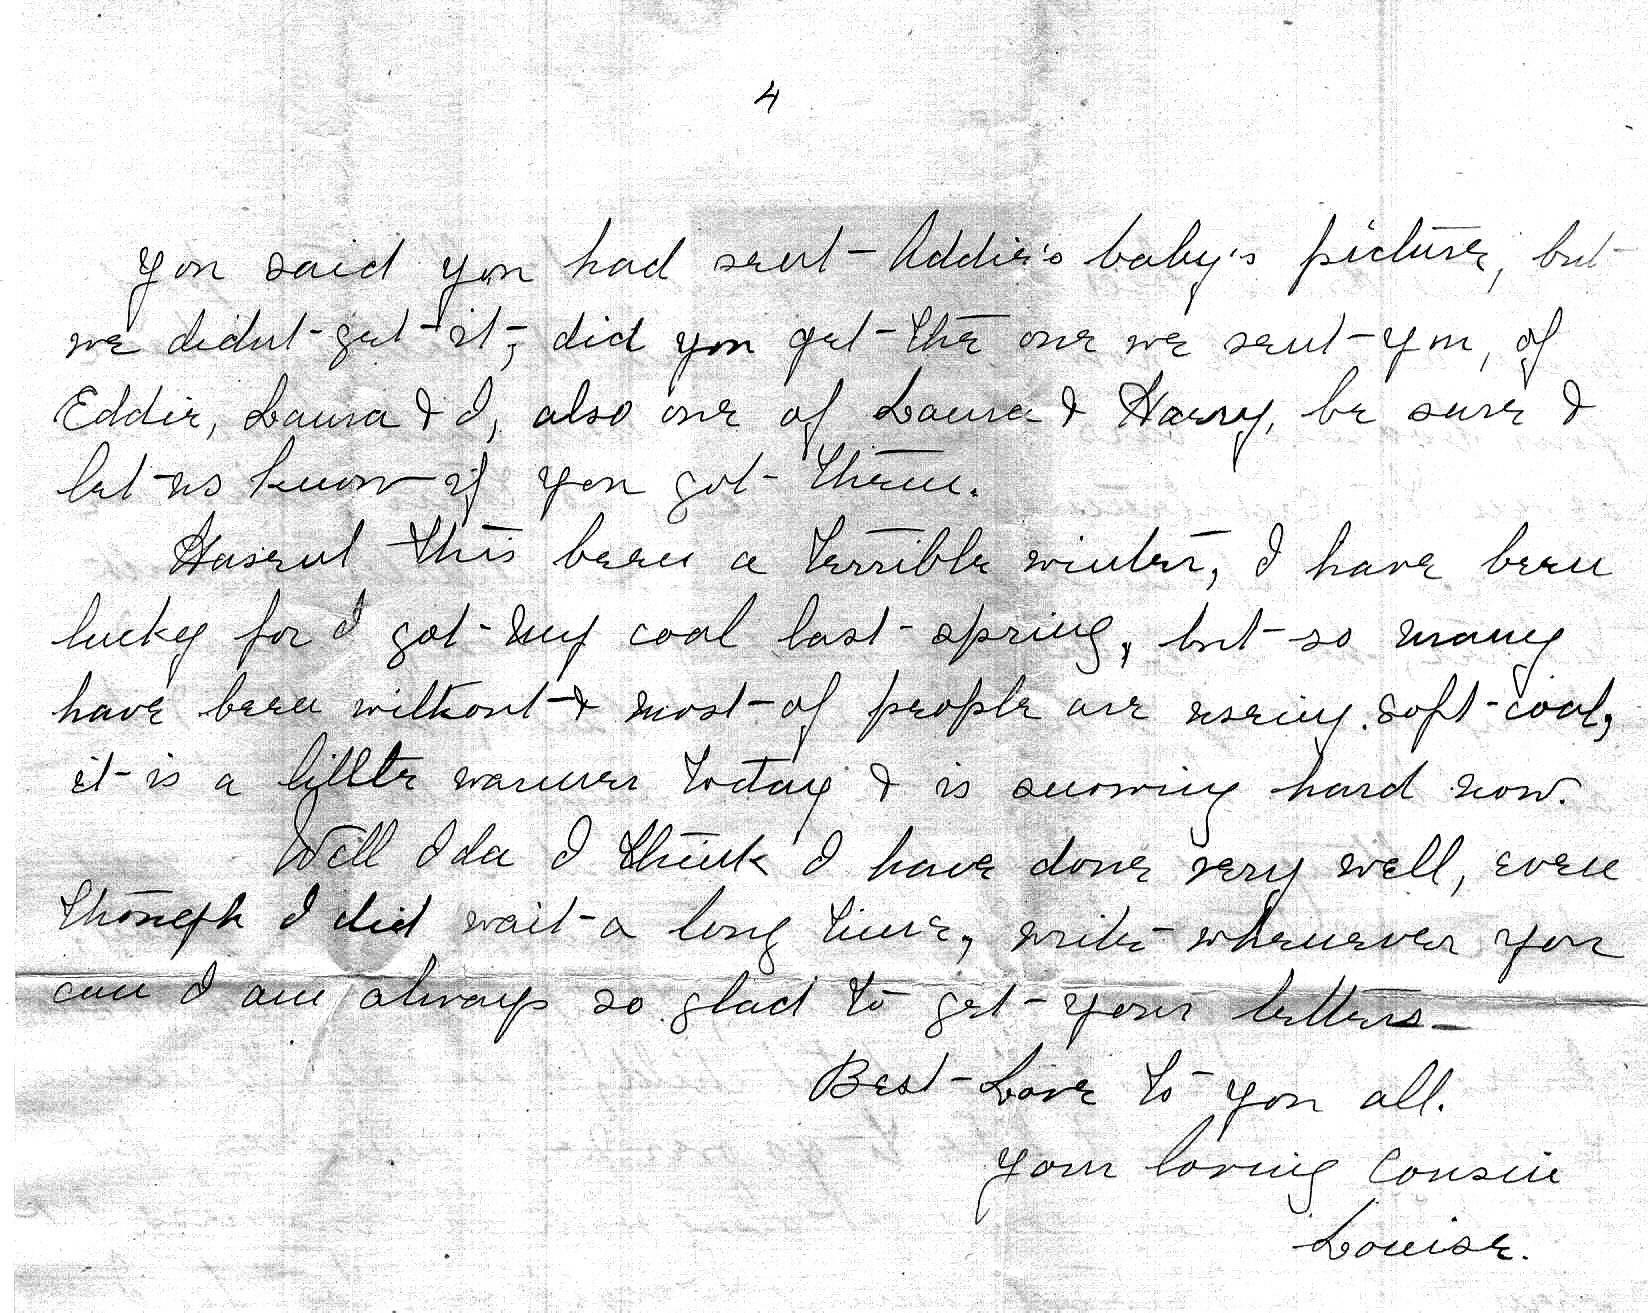 4
You said you had sent Addie's baby's picture, but
we didnt get it, did you get the one we sent you, of
Eddie, Laura & I, also one of Laura & Harry, be sure &
let us know if you got them.
Hasent this been a terrible winter, I have been
lucky for I got my coal last spring, but so many
have been without & most of people are useing soft coal,
it is a little warmer today & is snowing hard now.
Well Ida I think I have done very well, even
though I did wait a long time, write whenever you
can I am always so glad to get your letters
Best Love to you all.
Your loving Cousin
Louise.